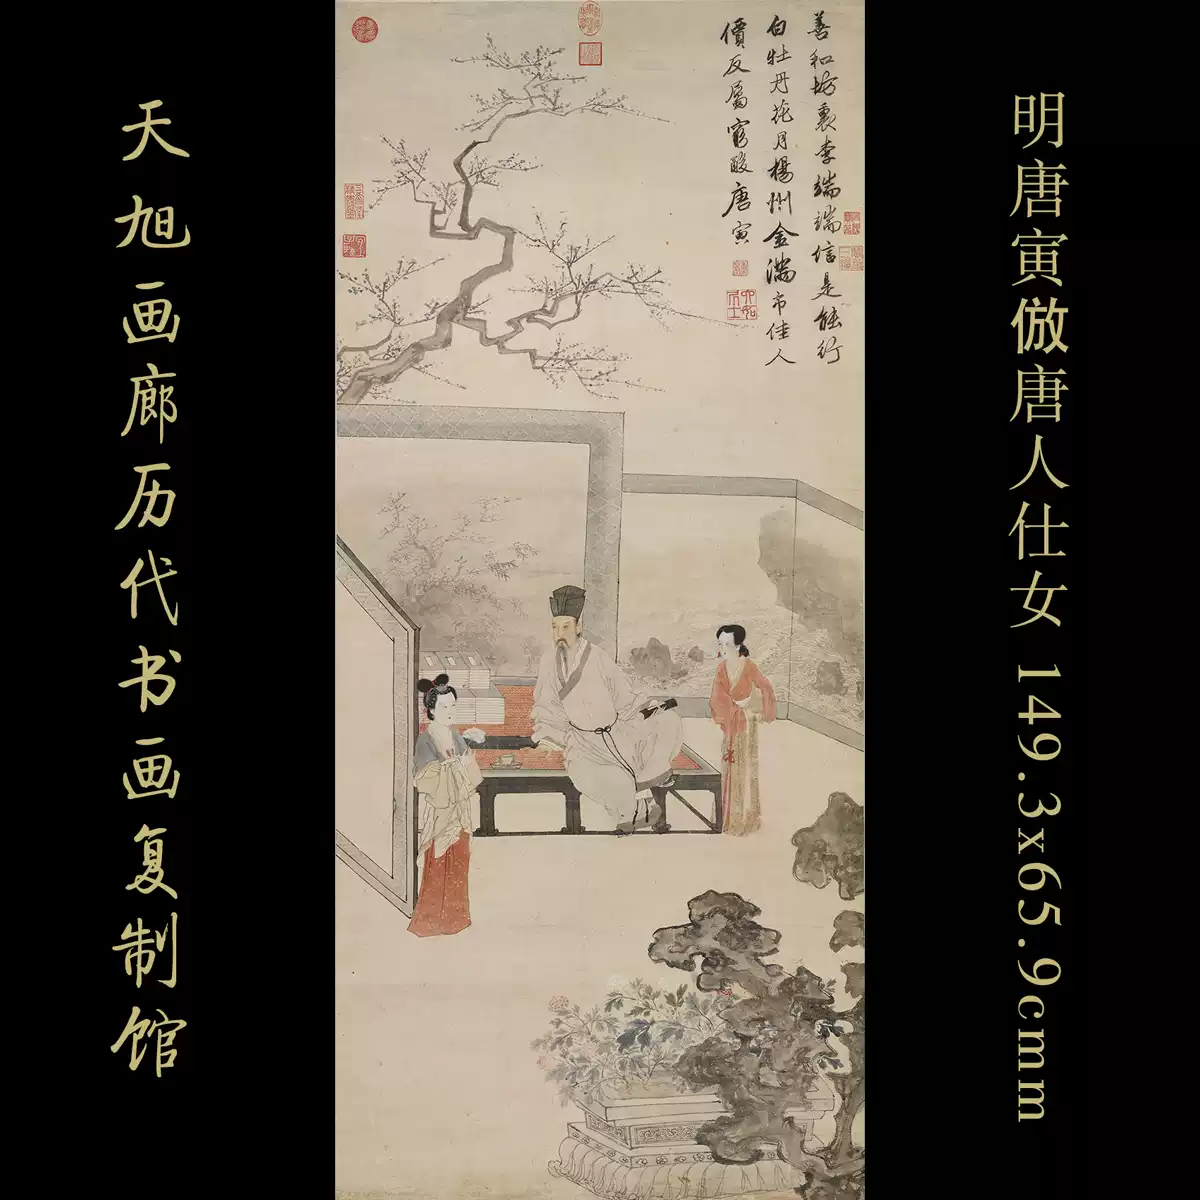 明唐寅倣唐人仕女 149.3x65.9cmm
善和坊裏李端端信是能行
白牡丹花月楊州金滿市佳人
價反屬窮酸唐寅
六如居士
天旭画廊历代书画复制馆